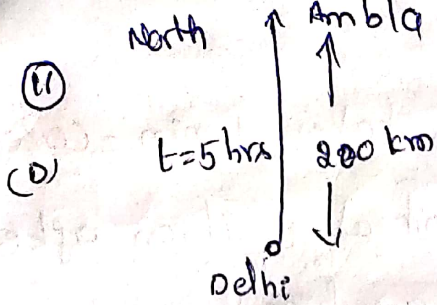 North Ambla
(11)
(D) t=5 hrs 200 km
Delhi